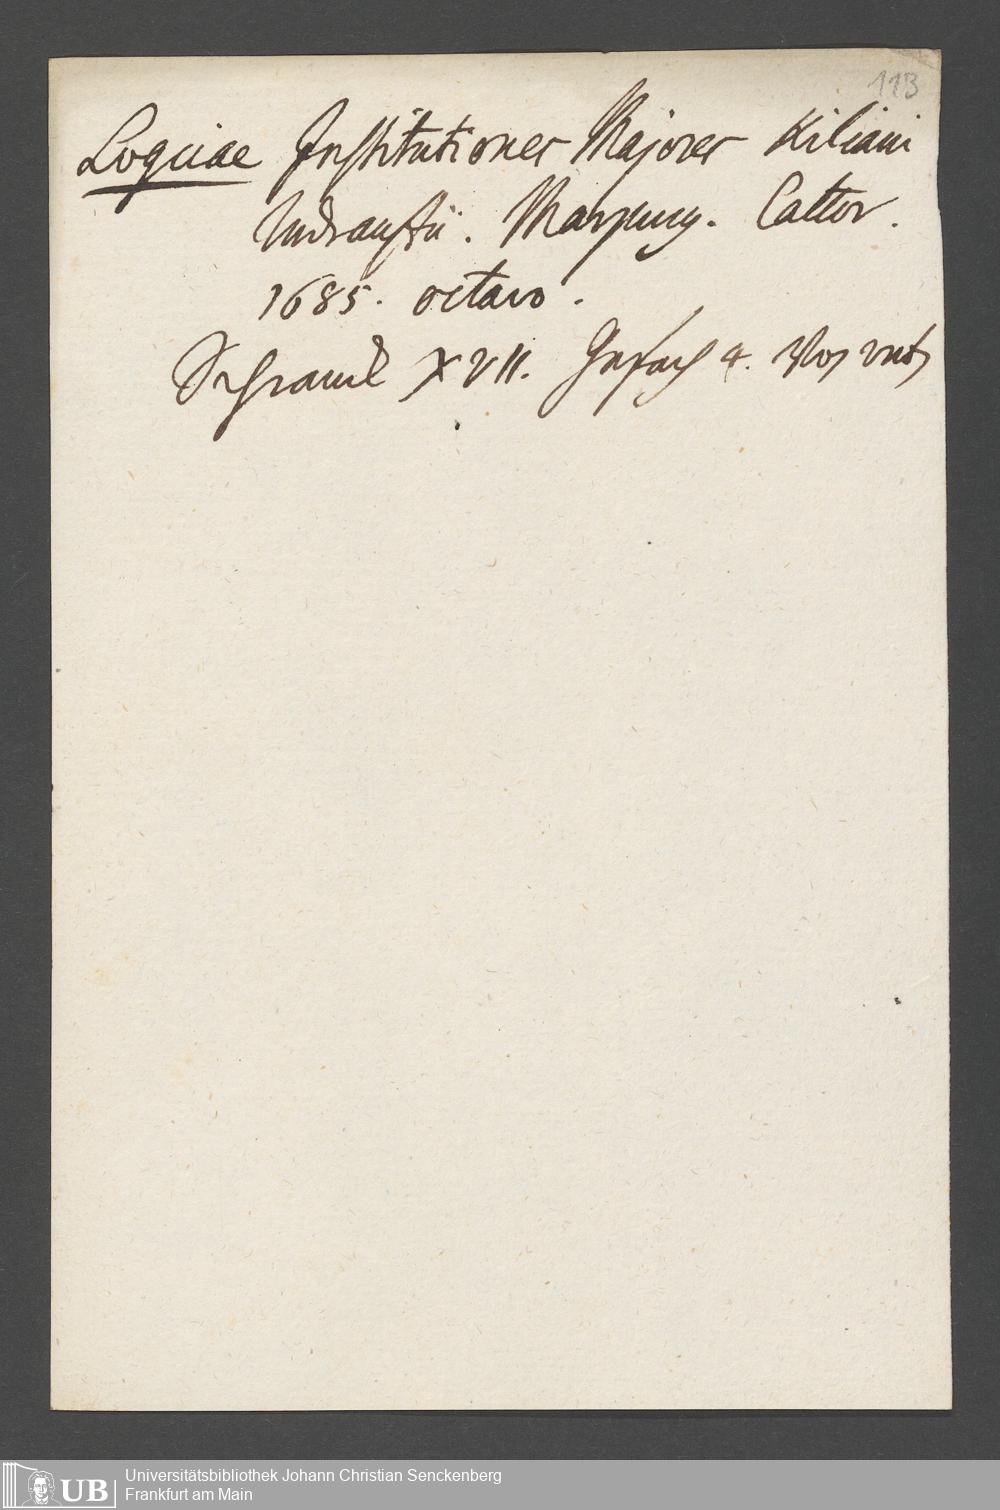 113
Logicae Institutiones Majores Kiliani
Rudrauffii. Marpurg. Cattor.
1685. octavo.
Schranck XVII. Gefach 4.
Universitätsbibliothek Johann Christian Senckenberg
Frankfurt am Main
UB